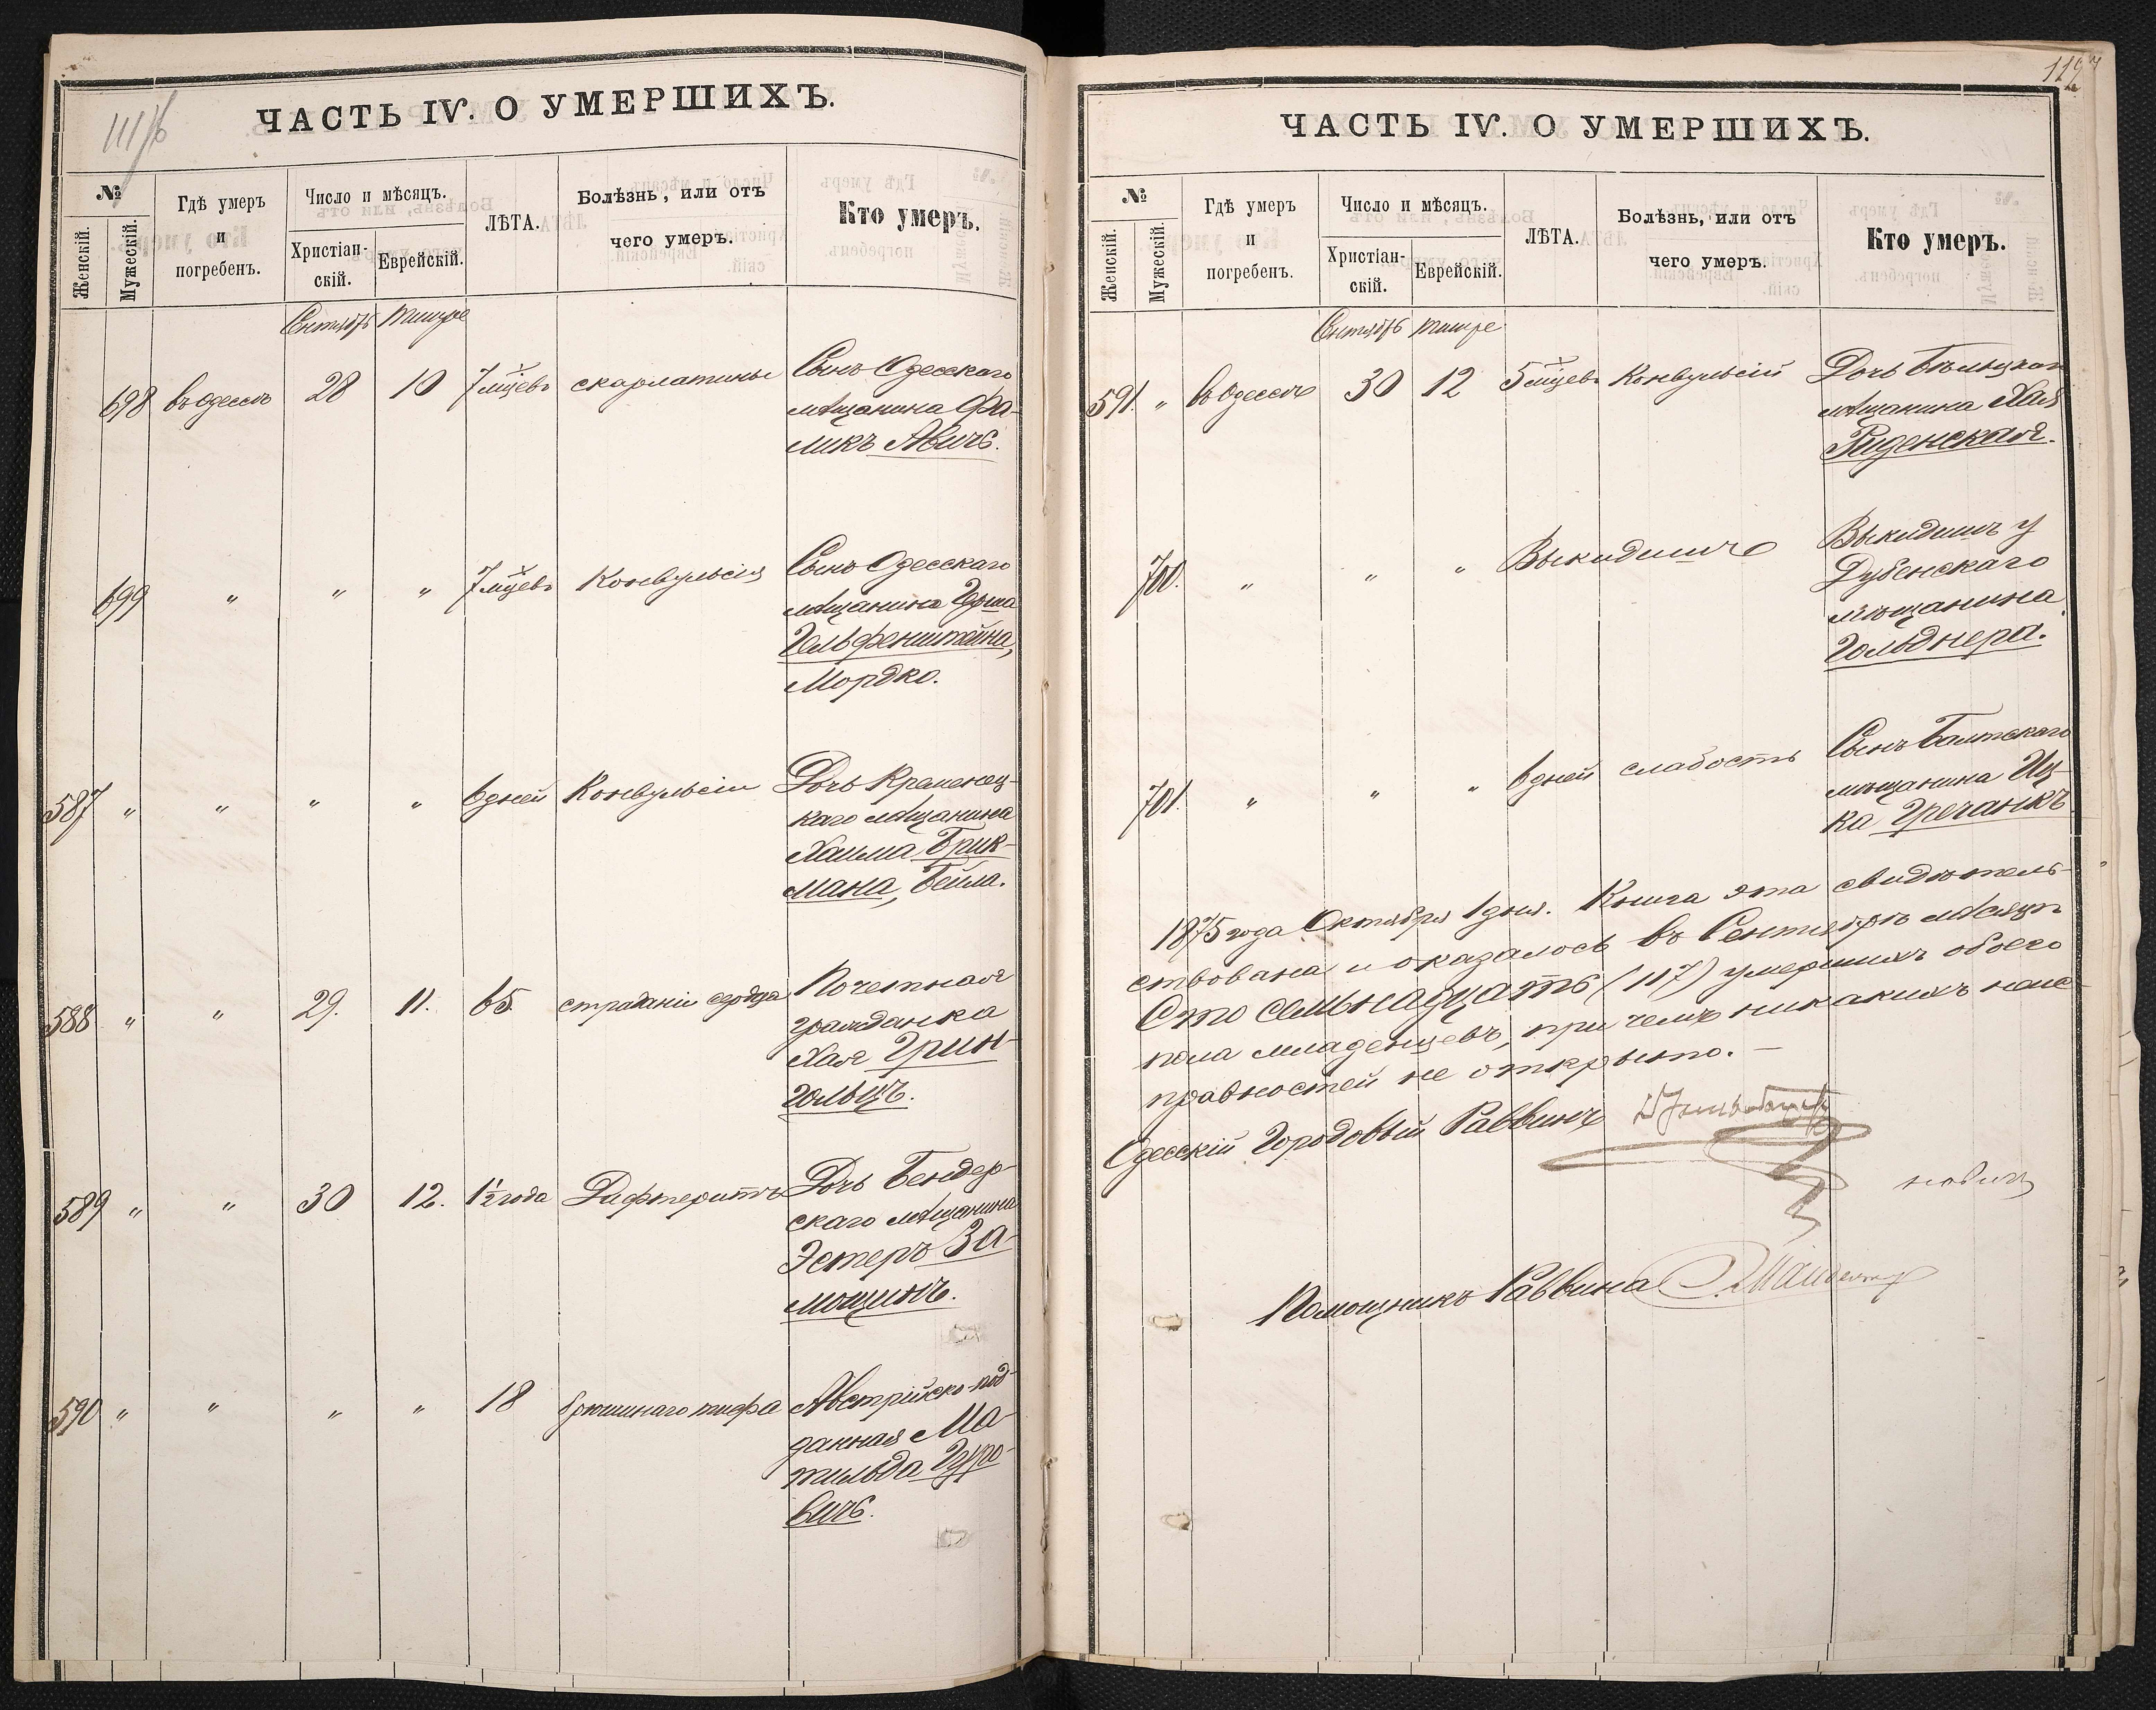 111/б
ЧАСТЬ IV. О УМЕРШИХЪ.
№
Женскій.
Мужескій.
Гдѣ умеръ
и
погребенъ.
Число и мѣсяцъ.
Христіан-
скій.
Еврейскій.
ЛѢТА.
Болѣзнь, или отъ
чего умеръ.
Кто умеръ.
Сентябрь Тишре
698 въ Одессѣ 28 10 7 м-цевъ скарлатины Сынъ Одесскаго
мѣщанина Фа-
ликъ Авичъ.
699 " " " 7 м-цевъ Конвульсія Сынъ Одесскаго
мѣщанина Герша
Гельфенштейна,
Мордко.
587 " " " " 6 дней Конвульсіи Дочь Кременец-
каго мѣщанина
Хаима Брик-
мана, Бейла.
588 " " 29. 11. 65. страданія сердца Почетная
гражданка
Хая Грин-
гольцъ.
589 " " 30 12. 1½ года Дифтеритъ Дочь Бендер-
скаго мѣщанина
Эстеръ За-
мощинъ.
590 " " " " 18 брюшнаго тифа Австрійско-под-
данная Ма-
тильда Гуро-
вичъ.
ЧАСТЬ IV. О УМЕРШИХЪ.
№
Женскій.
Мужескій.
Гдѣ умеръ
и
погребенъ.
Число и мѣсяцъ.
Христіан-
скій.
Еврейскій.
ЛѢТА.
Болѣзнь, или отъ
чего умеръ.
Кто умеръ.
Сентябрь Тишре
591. " въ Одессѣ 30 12 5 м-цевъ Конвульсій Дочь Бѣльцкаго
мѣщанина Хая
Риденская.
700. " " " Выкидышъ Выкидышъ у
Дубенскаго
мѣщанина
Гольднера.
701. " " " 6 дней слабость Сынъ Балтскаго
мѣщанина Иц-
ка Гречаникъ
1875 года Октября 1 дня. Книга эта свидѣтель-
ствована и оказалось въ Сентябрѣ мѣсяцѣ
Сто семьнадцать (117) умершихъ обоего
пола младенцевъ, при чемъ никакихъ неис-
правностей не открыто. —
Одесскій Городовый Раввинъ
Помощникъ Раввина